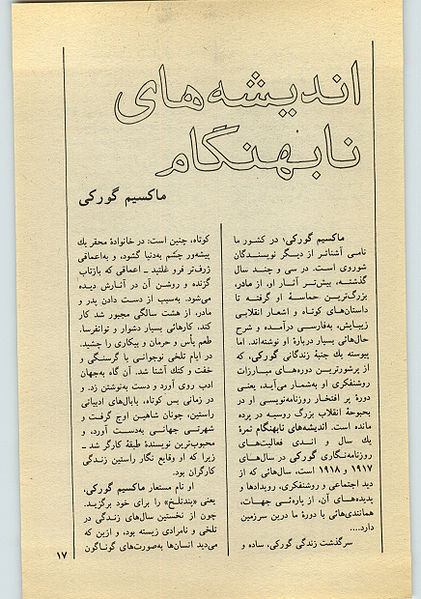 اندیشه‌های
نابهنگام
ماکسیم گورکی
ماکسیم گورکی، در کشور ما
نامی آشناتر از دیگر نویسندگان
شوروی است. در سی و چند سال
گذشته، بیش‌تر آثار او، از مادر،
بزرگ‌ترین حماسهٔ او گرفته تا
داستان‌های کوتاه و اشعار انقلابی
زیبایش، به‌فارسی درآمده و شرح
حال‌هائی بسیار دربارهٔ او نوشته‌اند. اما
پیوسته یک جنبهٔ زندگانی گورکی، که
از پرشورترین دوره‌های مبارزات
روشنفکری او به‌شمار می‌آید، یعنی
دورهٔ پر افتخار روزنامه‌نویسی او در
بحبوحهٔ انقلاب بزرگ روسیه در پرده
مانده است. اندیشه‌های نابهنگام ثمرهٔ
یک سال و اندی فعالیت‌های
روزنامه‌نگاری گورکی در سال‌های
۱۹۱۷ و ۱۹۱۸ است، سال‌هائی که از
دید اجتماعی و روشنفکری، رویدادها و
پدیده‌های آن، از پاره‌ئی جهات،
همانندی‌هائی با دورهٔ ما درین سرزمین
دارد....
سرگذشت زندگی گورکی، ساده و
کوتاه، چنین است: در خانوادهٔ محقر یك
پیشه‌ور چشم به‌دنیا گشود، و به‌اعماقی
ژرف‌تر فرو غلتید ـ اعماقی که بازتاب
گزنده و روشن آن در آثارش دیده
می‌شود. به‌سبب از دست دادن پدر و
مادر، از هشت سالگی مجبور شد کار
کند، کارهائی بسیار دشوار و توانفرسا.
طعم یأس و حرمان و بیکاری را چشید.
در ایام تلخی نوجوانی با گرسنگی و
خفت و کتك آشنا شد. آن گاه به‌جهان
ادب روی آورد و دست به‌نوشتن زد. و
در زمانی بس کوتاه، بابال‌های ادبیاتی
راستین، چونان شاهین اوج گرفت و
شهرتی جهانی به‌دست آورد، و
محبوب‌ترین نویسندهٔ طبقهٔ کارگر شد ـ
زیرا که او وقایع نگار راستین زندگی
کارگران بود.
او نام مستعار ماکسیم گورکی،
یعنی «پندتلخ» را برای خود برگزید.
چون از نخستین سال‌های زندگی در
تلخی و نامرادی زیسته بود، و ازین که
می‌دید انسان‌ها به‌صورت‌های گوناگون
۱۷